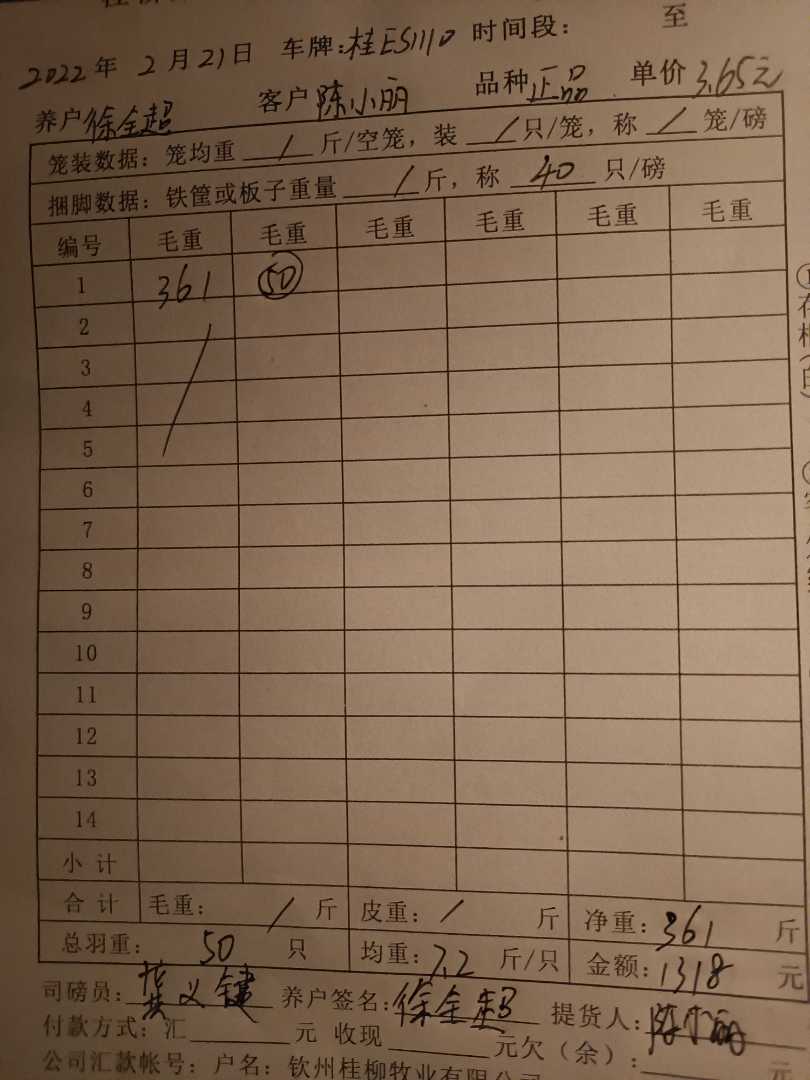 2022年 2月21日 车牌:桂ES1110 时间段: 至
养户徐全超 客户陈小丽 品种正品 单价3.65元
笼装数据：笼均重 / 斤/空笼，装 / 只/笼，称 / 笼/磅
捆脚数据：铁筐或板子重量 / 斤，称 40 只/磅
编号 毛重 毛重 毛重 毛重 毛重 毛重
1 361 50
2
3
4
5
6
7
8
9
10
11
12
13
14
小计
合计 毛重： / 斤 皮重： / 斤 净重：361 斤
总羽重： 50 只 均重：7.2 斤/只 金额：1318 元
司磅员：龚义键 养户签名：徐全超 提货人：陈小丽
付款方式：汇 元 收现 元欠（余）： 元
公司汇款帐号：户名：钦州桂柳牧业有限公司